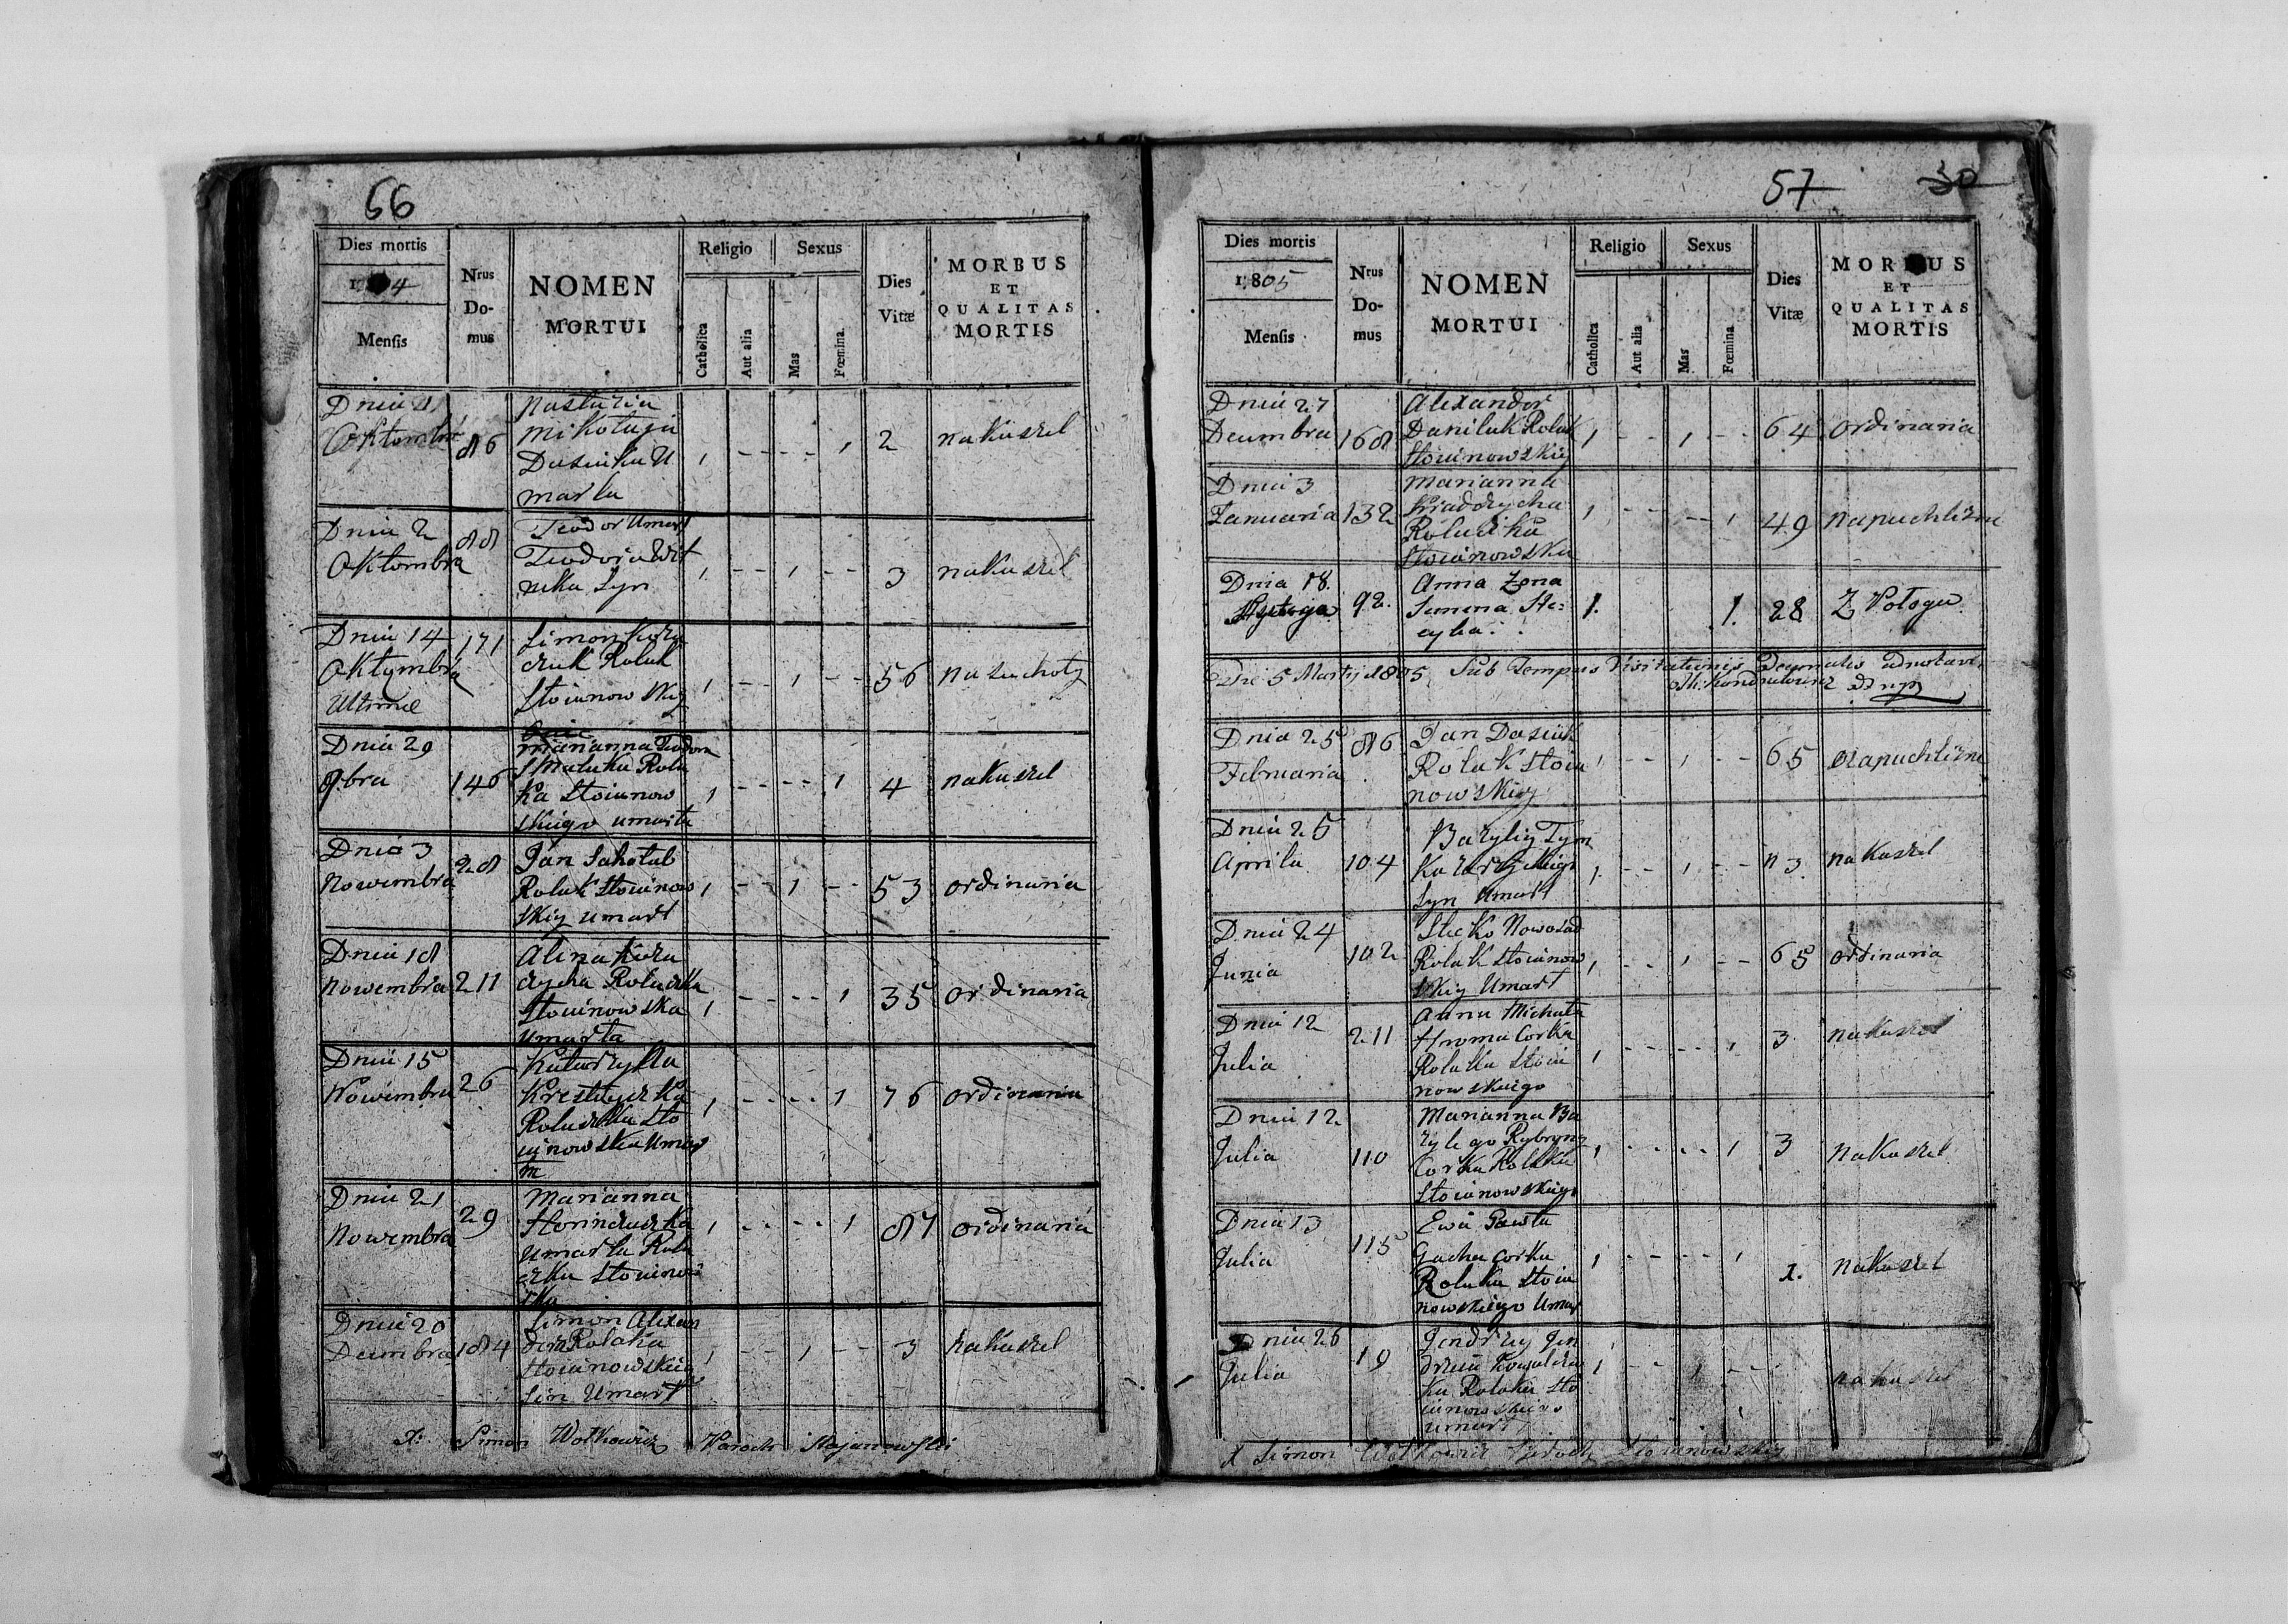 56
Dies mortis
1 4
Mensis
Nrus
Do-
mus
NOMEN
MORTUI
Religio
Catholica
Aut alia
Sexus
Mas
Fœmina
Dies
Vitæ
MORBUS
ET
QUALITAS
MORTIS
Dnia
Oktombra
86
Nastazia
Mikołaja
Dasiuka U
marła
1 - - - - 1
2
na kaszel
Dnia 2
Oktombra
88
Teodor Umarł
Teodora
Syn
1 - - 1 - -
3
na kaszel
Dnia 14
Oktymbra
Ultimae
171
Simon
Rolak
Stoianowskiy
1 - - 1 - -
56
na suchoty
Dnia 29
9bra
146
Marianna Teodora
Rola
ka Stoianow
skiego umarła
1 - - - - 1
4
na kaszel
Dnia 3
Nowembra
28
Jan
Rolak Stoianow
skiy umarł
1 - - 1 - -
53
ordinaria
Dnia 18
Nowembra
211
Alina
Rolaczka
Stoianowska
umarła
1 - - - - 1
35
ordinaria
Dnia 15
Nowembra
26
Rolaczka Sto
ianowska umar
ła
1 - - - - 1
76
ordinaria
Dnia 21
Nowembra
29
Marianna
umarła Rola
czka Stoianow
ska
1 - - - - 1
87
ordinaria
Dnia 20
Decembra
184
Simon Alexan
dra Rolaka
Stoianowskiego
Sin Umarł
1 - - 1 - -
3
na kaszel
X: Simon Wołkowicz Paroch Stojanowski
57 30
Dies mortis
1805
Mensis
Nrus
Do-
mus
NOMEN
MORTUI
Religio
Catholica
Aut alia
Sexus
Mas
Fœmina
Dies
Vitæ
MORBUS
ET
QUALITAS
MORTIS
Dnia 27
Decembra
168
Alexander
Daniluk Rolak
Stoianowskiy
1 - - 1 - -
64
ordinaria
Dnia 3
Januaria
132
Marianna
Rolaczka
Stoianowska
1 - - - - 1
49
na puchlizne
Dnia 18.
92.
Anna Żona
Semena Ste=
cyka.
1. 1.
28
Z Połogu.
Die 5 Martij 1805 Sub Tempus Visitationis Decanalis adnotavi
Dnia 25
Februaria
86
Jan Dasiuk
Rolak Stoia
nowskiy
1 - - 1 - -
65
na puchlizne
Dnia 25
Aprila
104
Bazyliy Tym
Syn Umarł
1 - - 1 - -
3
na kaszel
Dnia 24
Junia
102
Stecko Nowosad
Rolak Stoianow
skiy Umarł
1 - - 1 - -
65
ordinaria
Dnia 12
Julia
211
Anna Michała
Hroma Corka
Rolaka Stoia
nowskiego
1 - - - - 1
3
na kaszel
Dnia 12
Julia
110
Marianna Ba
zylego
Corka Rolaka
Stoianowskiego
1 - - - - 1
3
na kaszel
Dnia 13
Julia
115
Ewa Pawła
Gacha Corka
Rolaka Stoia
nowskiego Umar
1 - - - - 1
1.
na kaszel
Dnia 26
Julia
19
Jendrzey Jen
drzeia
ka Rolaka Sto
ianowskiego
umarł
1 - - 1 - -
na kaszel
X Simon Wołkowicz Paroch Stoianowskiy